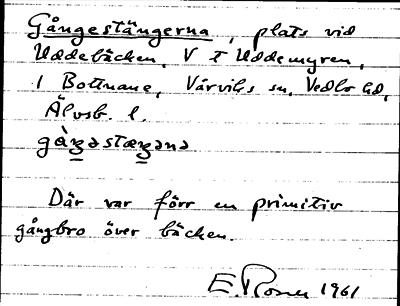 Gångestängerna, plats vid
Uddebäcken, V t Uddemyren,
i Bottnane, Värviks sn, Vedbo hd,
Älvsb. l.
gàŋəstæŋəna
Där var förr en primitiv
gångbro över bäcken.
E. Rosen 1961